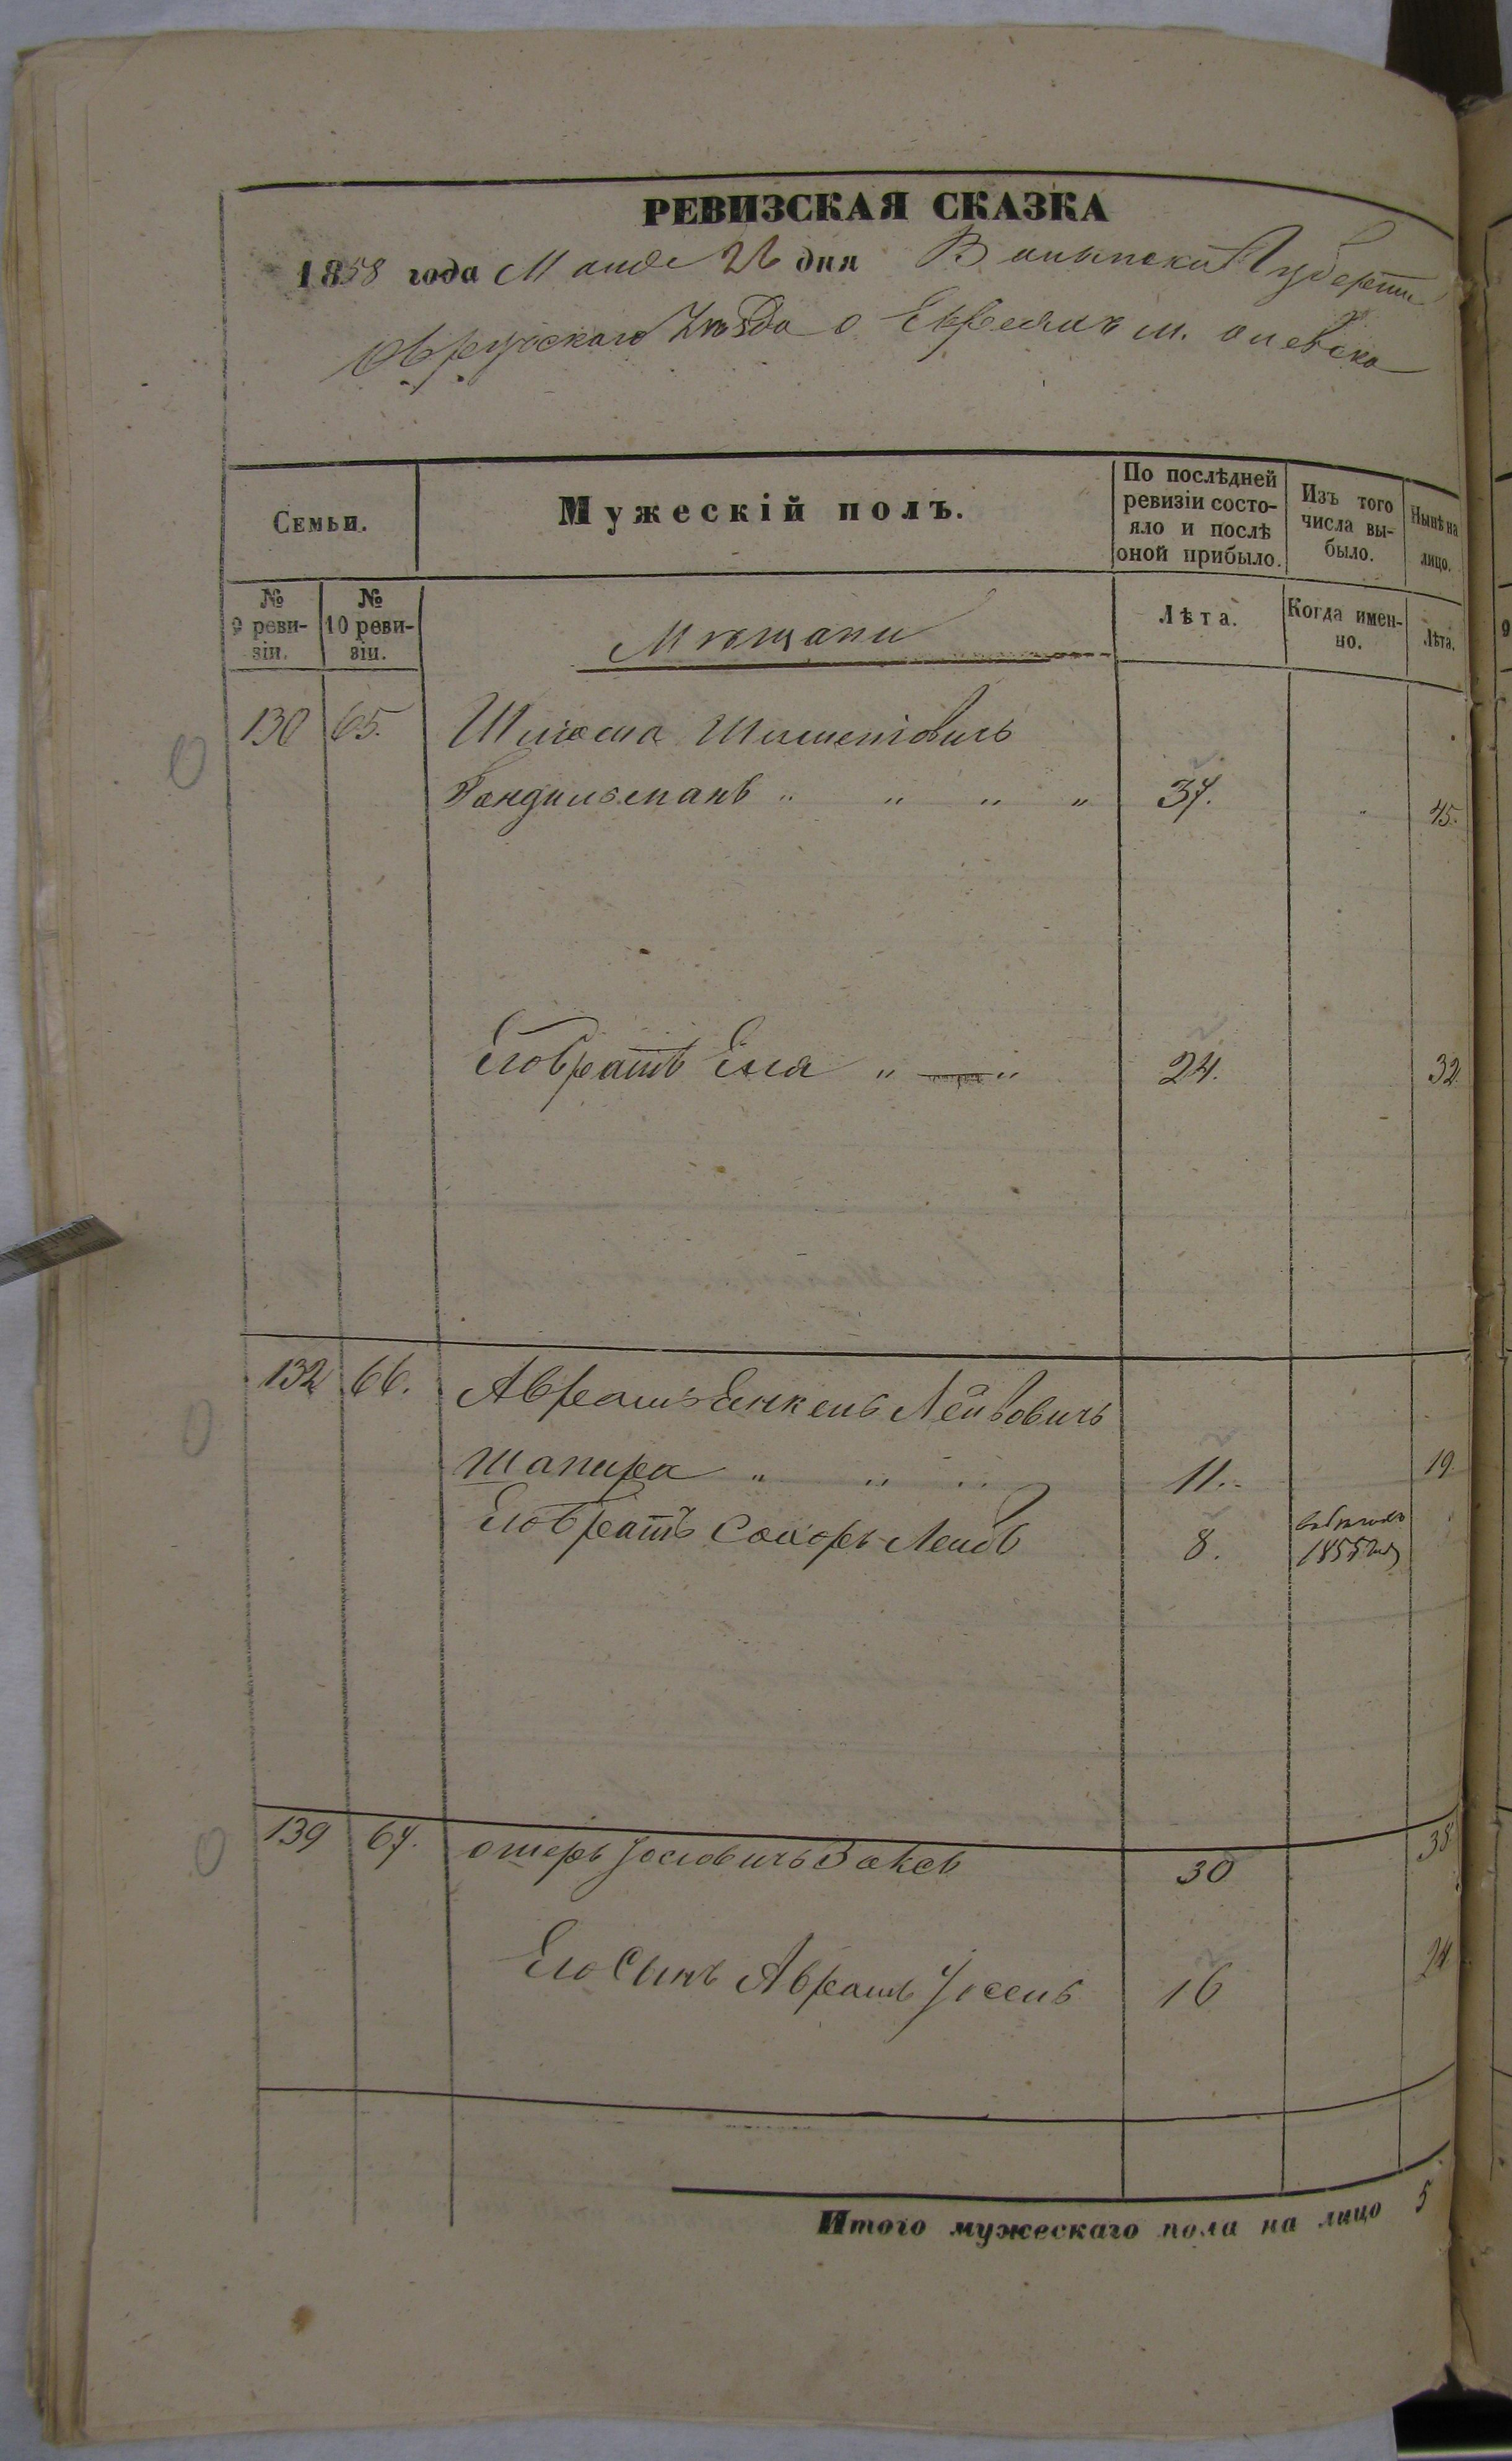 РЕВИЗСКАЯ СКАЗКА
1858 года Маия 26 дня Волынской Губернии
Овручскаго Уѣзда о Евреяхъ м. Олевска
Семьи.
Мужескій полъ.
По послѣдней ревизіи состо-
яло и послѣ
оной прибыло.
Изъ того
числа вы-
было.
Нынѣ на
лицо.
№
9 реви-
зіи.
№
10 реви-
зіи.
Мѣщани
Лѣта.
Когда имен-
но.
Лѣта.
130 65. Шлiома
Гандельманъ " " " " 37. 45.
Его братъ Еля " " 24. 32
132 66. Аврамъ Янкель Лейбовичъ
Шапира " " " 11. 19.
Его братъ Сахоръ Лейбъ 8. 1855 году
139 67. Ошеръ Іосiовичъ Заксъ 30 38
Его Сынъ Аврамъ Іосель 16 24
Итого мужескаго пола на лицо 5